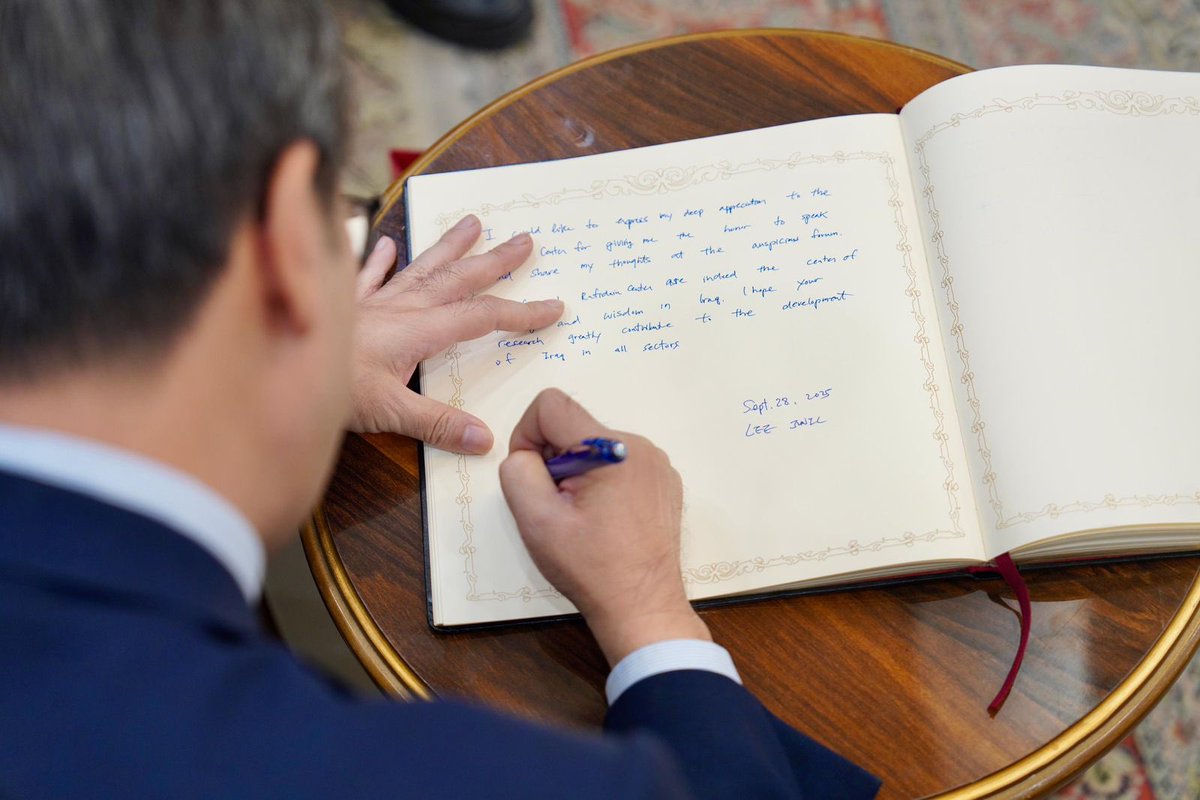 I would like to express my deep appreciation to the
Center for giving me the honor to speak
and share my thoughts at the auspicious forum.
Rafidain Center are indeed the center of
and wisdom in Iraq. I hope your
research greatly contribute to the development
of Iraq in all sectors
Sept. 28. 2025
LEE JUNIL